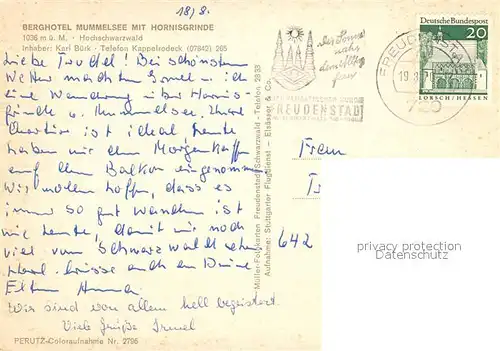 18/8.
BERGHOTEL MUMMELSEE MIT HORNISGRINDE
1036 m ü. M. · Hochschwarzwald
Inhaber: Karl Bürk · Telefon Kappelrodeck (07842) 265
Liebe Trudel! Bei schönstem
Wetter machten Irmel u. ich
eine Wanderung über Hornis-
grinde u. Mummelsee. Unser
Quartier ist ideal heute
haben wir den Morgenkaffee
auf dem Balkon eingenommen
Wir wollen hoffen, dass es
immer so gut
wie heute, damit wir noch
viel vom Schwarzwald sehen
Herzl. Grüsse auch an Deine
Eltern
Wir sind von allem hell begeistert.
Viele Grüße Irmel
PERUTZ-Coloraufnahme Nr. 2796
Müller-Foto-Karten Freudenstadt/Schwarzwald - Telefon 2833
Aufnahme: Stuttgarter Flugdienst - Elsässer & Co.
der Sonne
FREUDENSTADT
FREUDENSTADT
19.8.70
Deutsche Bundespost
20
LORSCH/HESSEN
Frau
642
privacy protection
Datenschutz